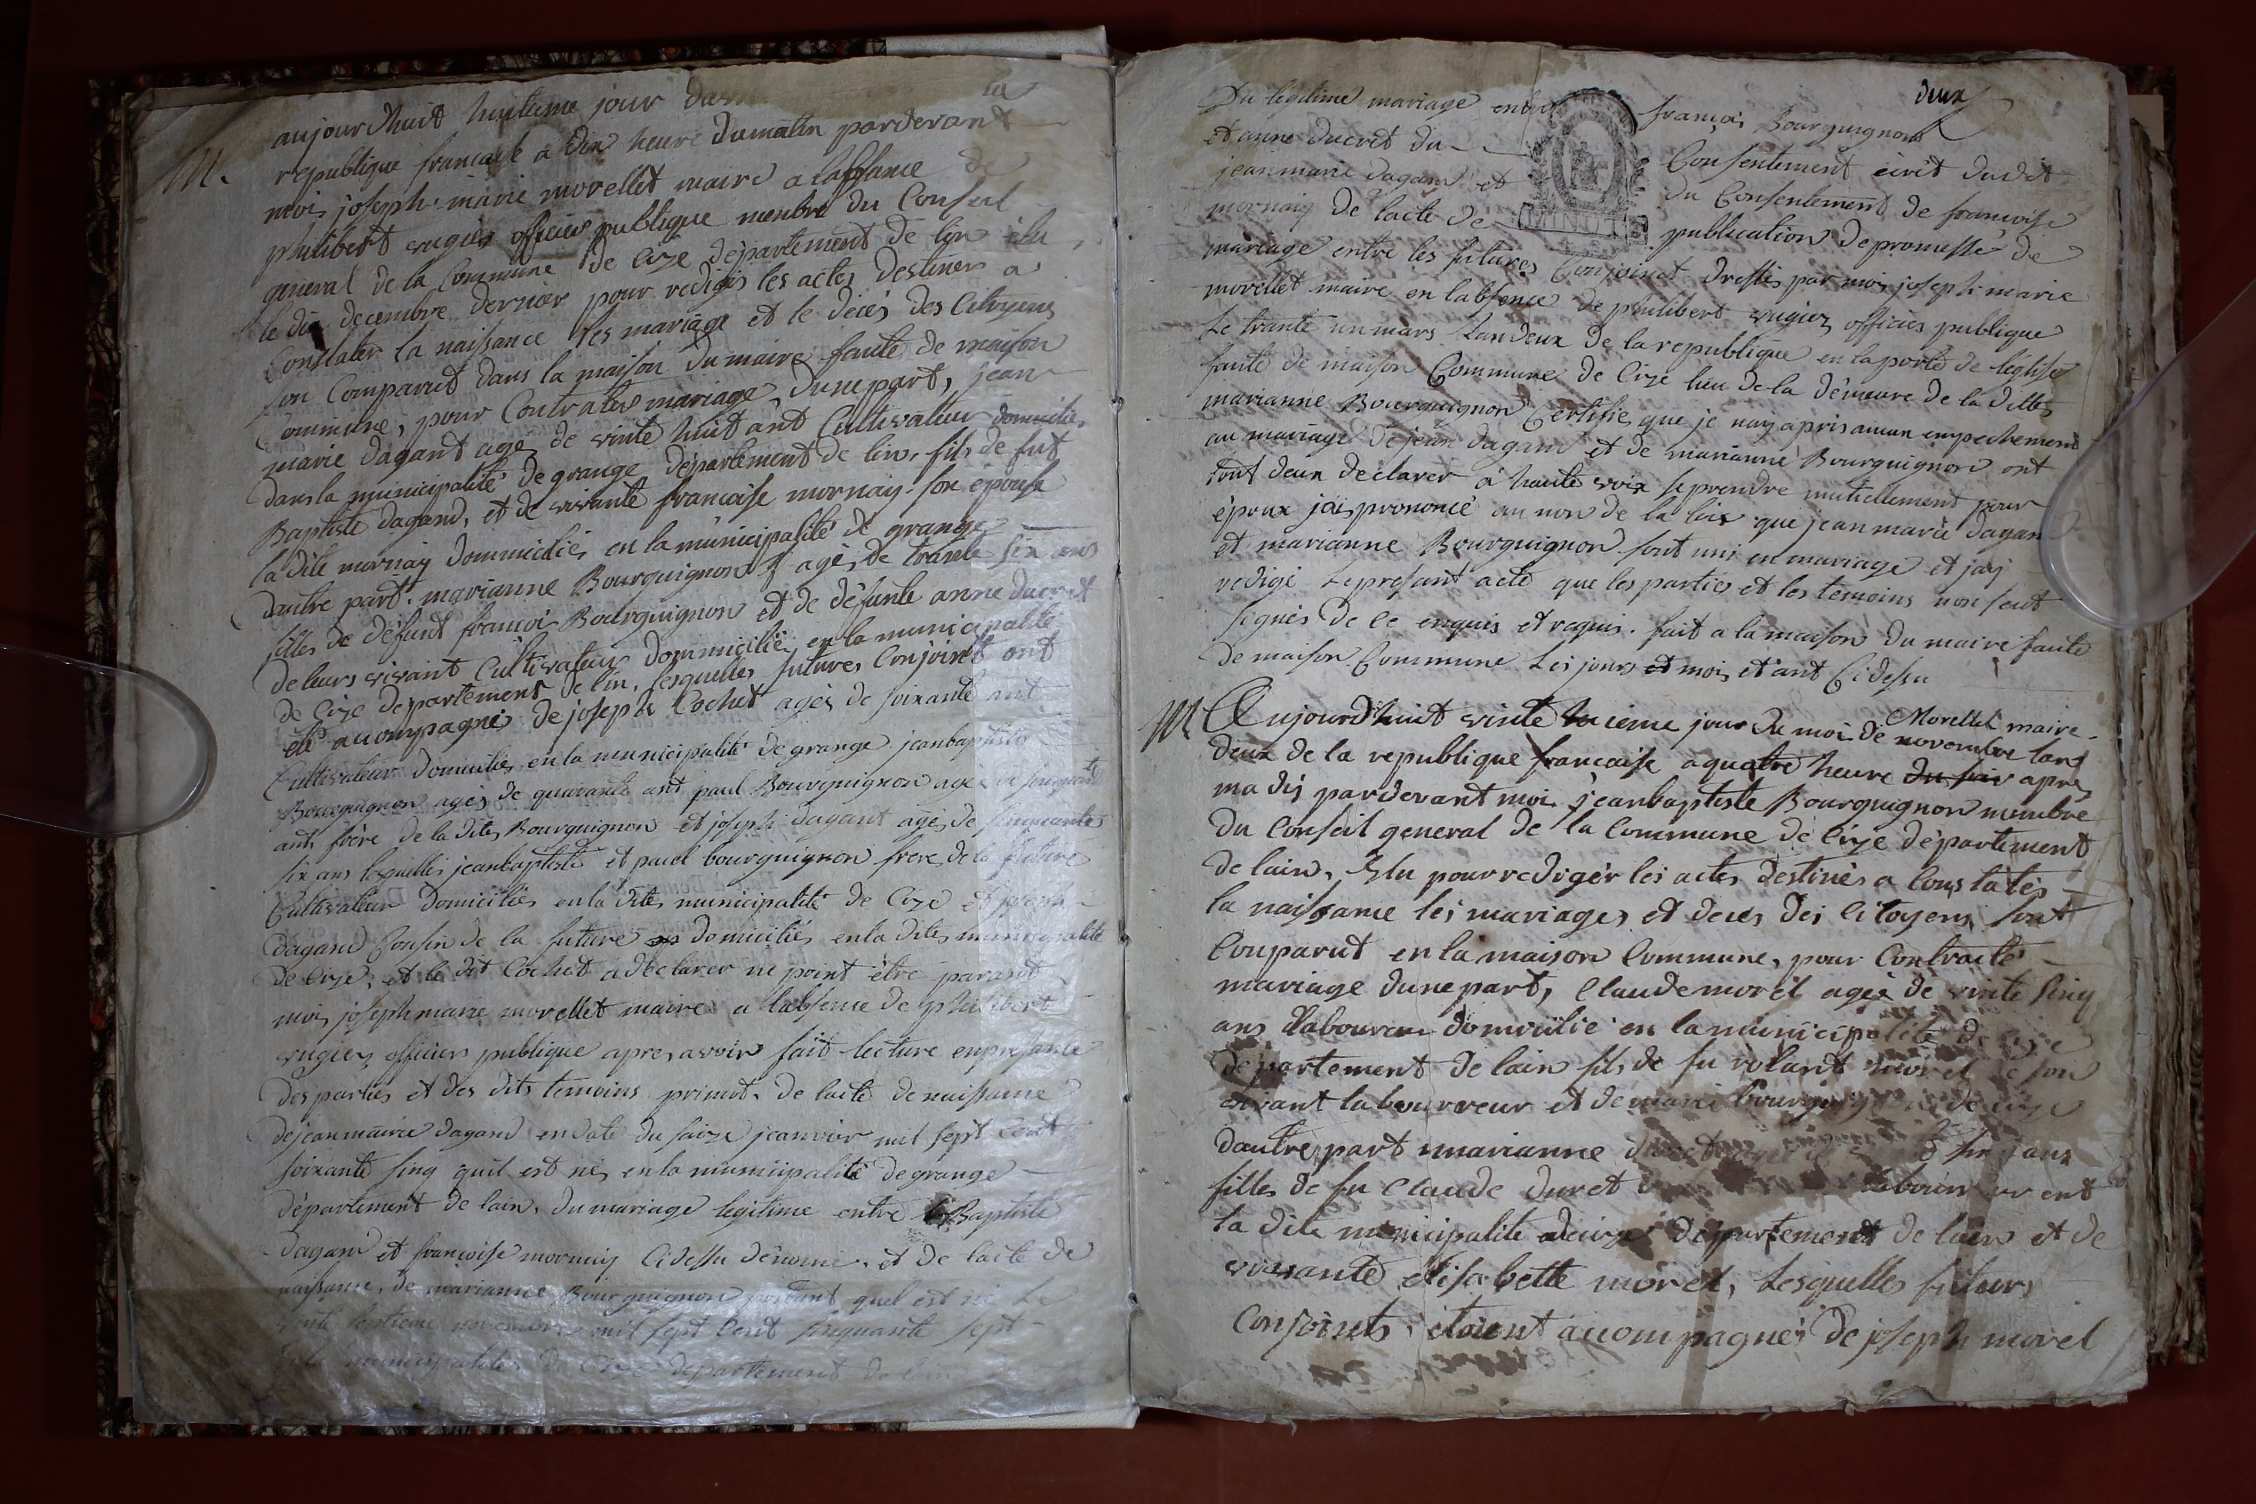 M.
aujourdhuit huitieme jour
republique française a dix heure du matin pardevant
moi joseph marie morellet maire a labssance de
philibert rugier officier publique menbre du Conseil
general de la Commune de Cize département de lin élu
le dix decembre dernier pour redigés les actes destiner a
Constater la naissance les mariage et le décès des Citoyens
son Comparut dans la maison du maire faute de maison
Commune, pour Contrater mariage, dune part, jean
marie dagant agé de vinte huit ant Cultivateur domicilie
dans la municipalité de grange département de lin, fils de fut
Baptiste dagand, et de vivante francoise mornay son épouse
la dite mornay dommicilié en la municipalité de grange
dautre part. marianne Bourguignon agés de trante six ans
filles de défunt françoi Bourguignon et de défunte anne ducret
de leurs vivant Cultivateur dommicilié en la municipalité
de Cize département de lin, lesquelles futures Conjoint ont
été acompagnés de joseph Cochet agés de soixante ant
Cultivateur domicilié en la municipalité de grange jeanbaptiste
Bourguignon agés de quarante ant, paul Bourguignon agé de sinquante
ant frère de la dite Bourguignon et joseph dagant agés de sinquante
six ans lesquelles jeanbaptiste et paul bourguignon frere de la future
Cultivateur domiciliés en la dite municipalité de Cize et joseph
dagand Consin de la future domicilié en la dite municipalité
de Cize, et le dit Cochet a declarer ne point être parant
moi joseph marie morellet maire a labsence de philibert
rugier officier publique apres avoir fait lecture enpresante
des parties et des dits temoins primot. de lacte de naissance
de jean marie dagand en date du saize jeanvier mil sept Cent
soixante sinq quil est né en la municipalité de grange
département de lain, du mariage legitime entre Baptiste
dagand et francoise mornay Cidessu dénomé. et de lacte de
naissance, de marianne Bourguignon portant quel est né le
vinte septieme novembre mil sept Cent sinquante sept
la municipalité de Cize département de lin
deux
Du legitime mariage entre françoi Bourguignon
et anne ducret du Consentement écrit dudit
jean marie dagand et du Consentement de françoise
mornay de lacte de publication de promesse de
mariage entre les futures Conjoinct dressés par moi joseph marie
morellet maire en labsence de philibert rugier officier publique
Le trante un mars Landeux de la republique en la porte de léglise
faute de maison Commune de Cize lieu de la démeure de la ditte
marianne Bourguignon Certifie que je nay apris aucun enpechement
au mariage de jean dagand et de marianne Bourguignon ont
tout deux declarer à haute voix se prendre mutuellement pour
époux jai prononcé au non de la loix que jean marie dagan
et marianne Bourguignon sont uni en mariage et jay
redigé Le presant acte que les parties et les temoins non seut
signés de ce enquis et raquis. fait a la maison du maire faute
de maison Commune Les jours et mois et ant Cidessu
Morellet maire
M
Aujourdhuit vinte jour du moi de novembre lant
deux de la republique française a quatre heure du soir apres
madis pardevant moi jeanbaptiste Bourguignon membre
du Conseil general de la Commune de Cize département
de lain, Elu pour redigér les actes destinés a Constatés
la naissance les mariages et décés des Citoyens sont
Conparut en la maison Commune, pour Contracté
mariage dune part, Claude morel agés de vinte sinq
ans laboureur domicilié en la municipalité de cize
département de lain fils de fu rolant morel de son
vivant labourreur et de marie bourguignon de cize
dautre part marianne ans
filles de fu Claude duret
la dite municipalité de cize département de lain et de
vivante elisabette morel, Lesquelles futurs
Conjoints étoient acompagnés de joseph morel